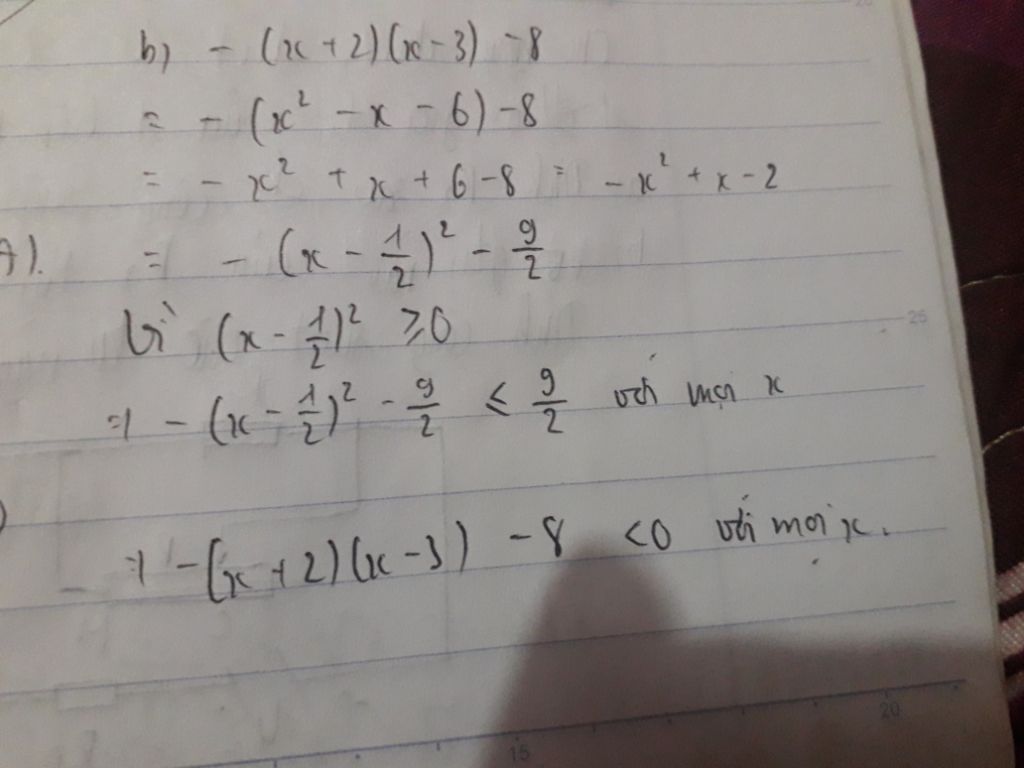 b) - (x + 2)(x - 3) - 8
= - (x² - x - 6) - 8
= - x² + x + 6 - 8 = - x² + x - 2
= - (x - 1/2)² - 9/2
Vì (x - 1/2)² ≥ 0
=> - (x - 1/2)² - 9/2 ≤ 9/2 với mọi x
=> - (x + 2)(x - 3) - 8 < 0 với mọi x.
25
20
15